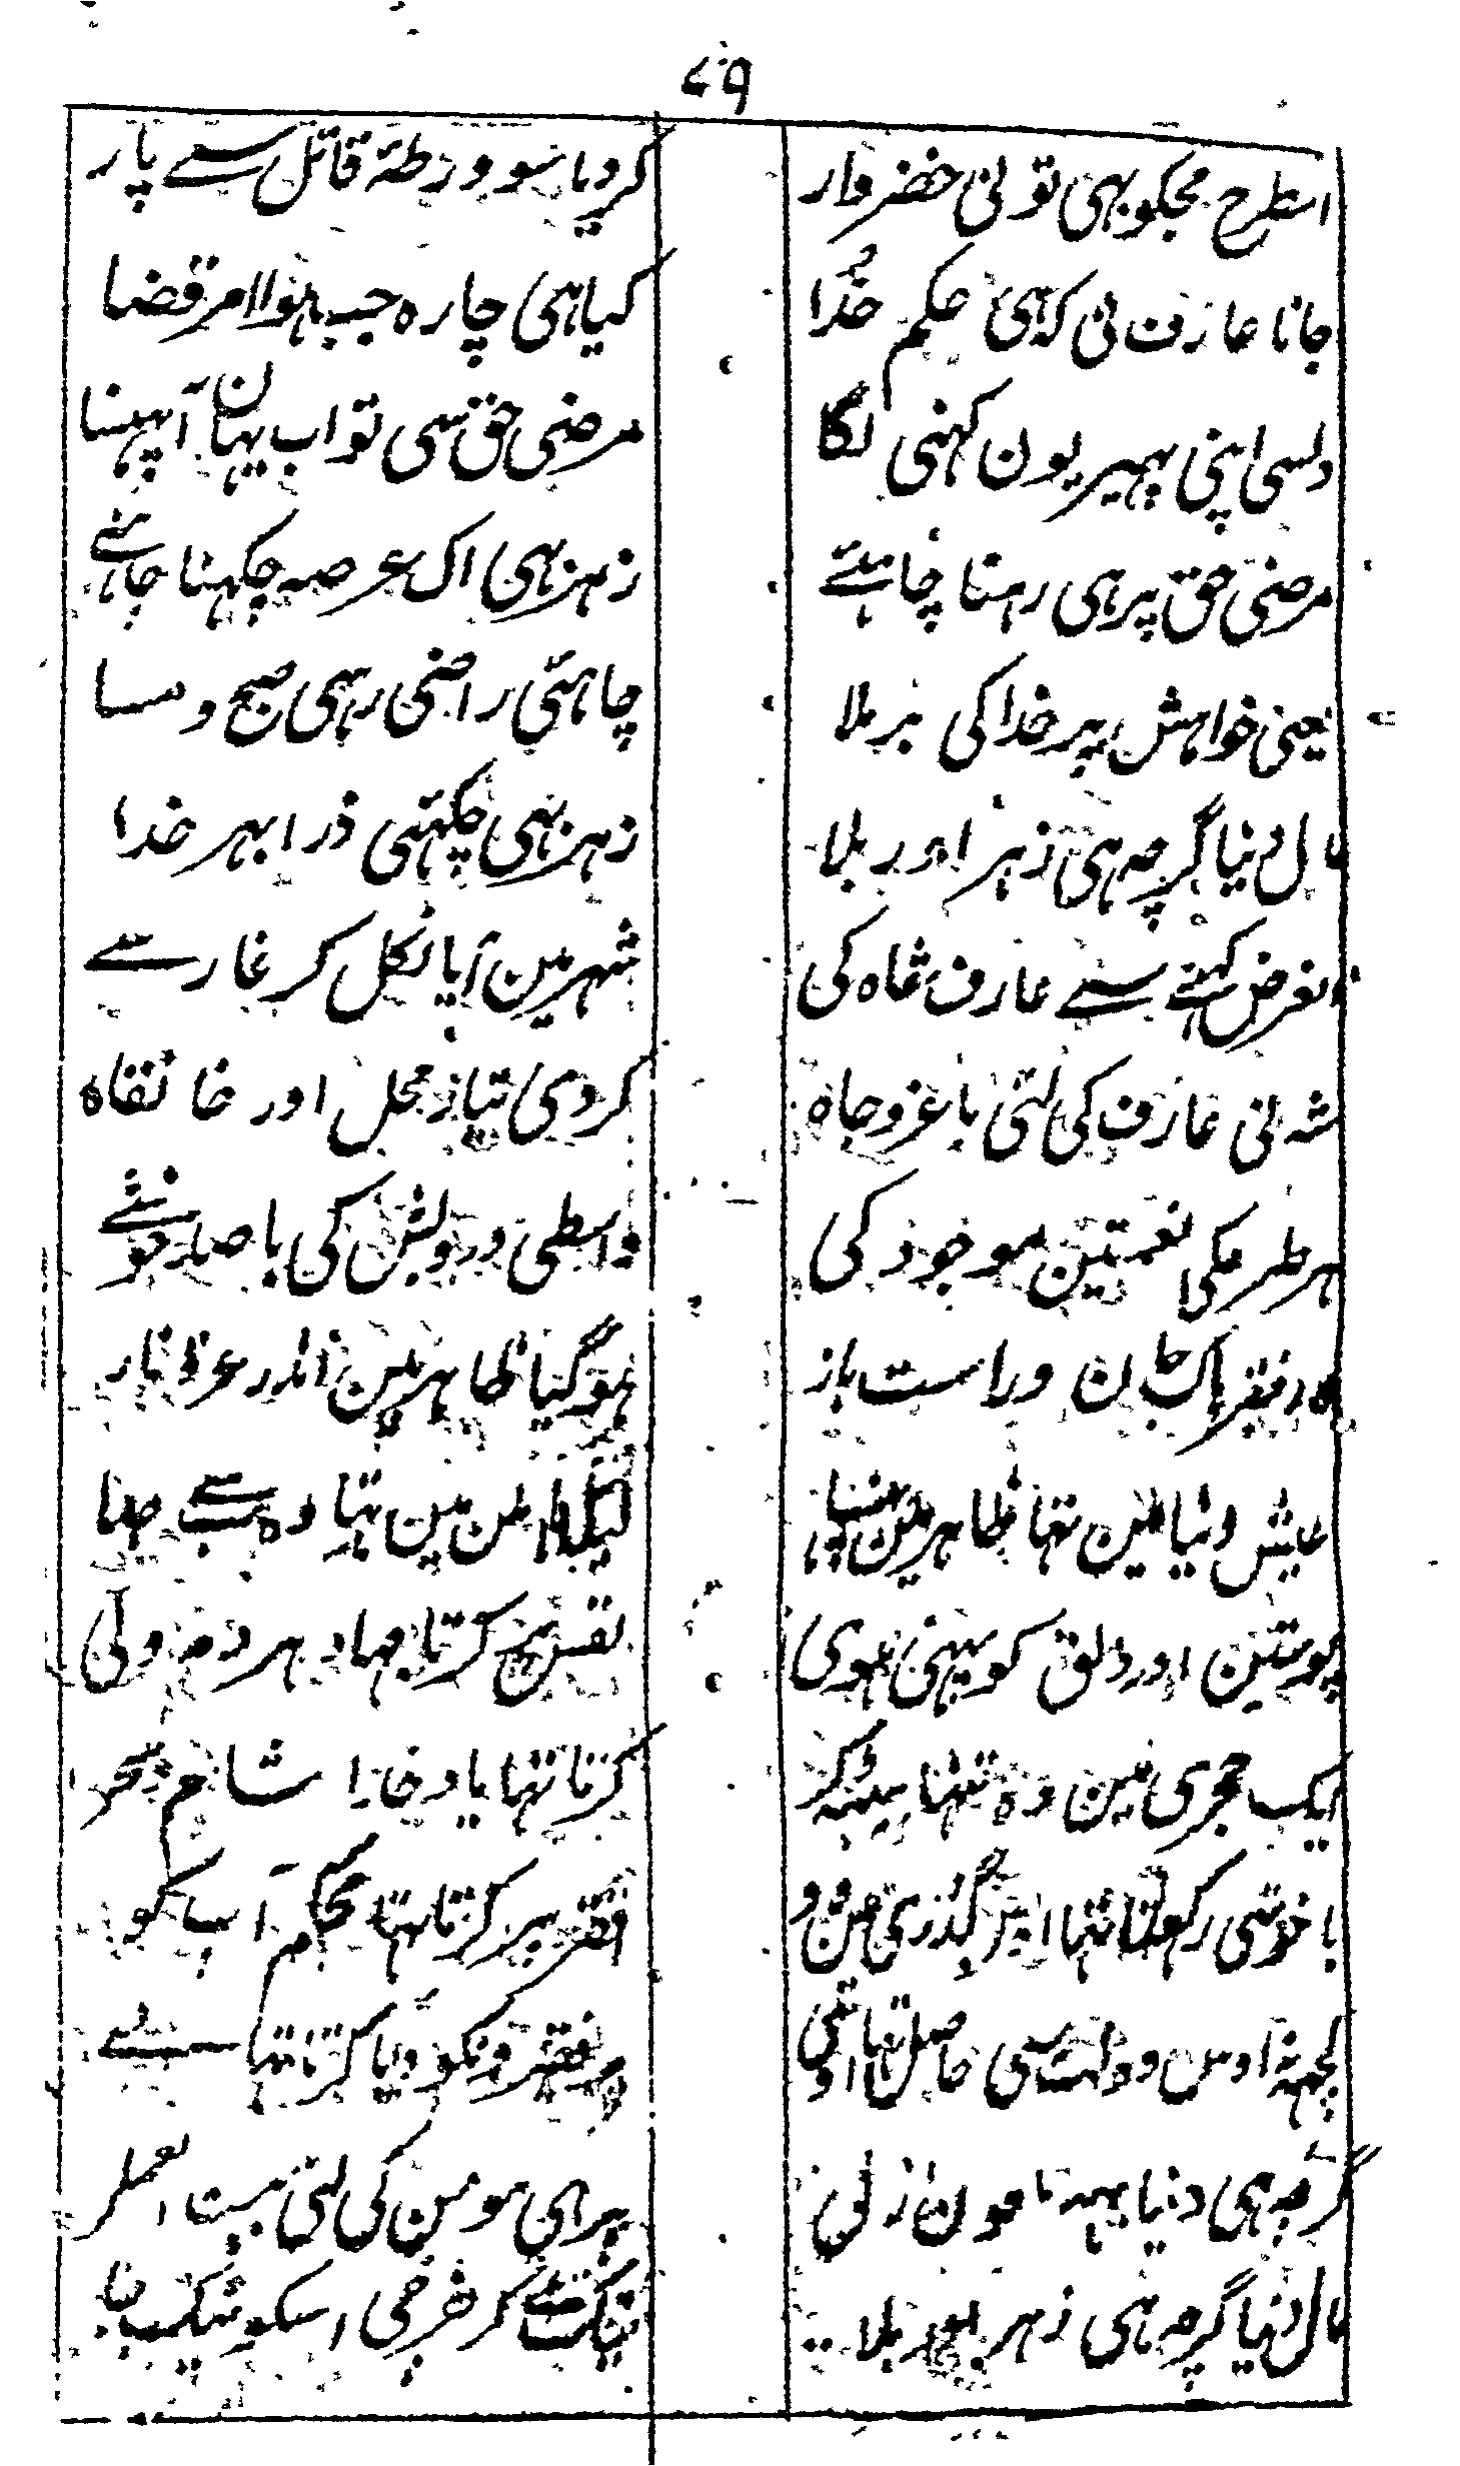 ۷۹
اسطرح مجکو بہی تو نی خضر وار
کر دیا سو ورطۂ قاتل سے پار
جانا عارف نی کہ ہی حکم خُدا
کیا ہی چارہ جب ہوا امر قضا
دلسی اپنی پہیر یون کہنی لگا
مرضی حق سی تو اب یہان آپہنسا
مرضی حق پر ہی رہنا چاہئے
زہر ہی اک عرصہ چکہنا چاہئے
یعنی خواہش پر خدا کی برملا
چاہئی راضی رہی صبح و مسا
مال دنیا گرچہ ہی زہر اور بلا
زہر ہی چکہئی ذرا بہر خدا
الغرض کہنے سے عارف شاہ کی
شہر مین آیا نکل کر غار سے
شہ نی عارف کی لئی با عز و جاہ
کر دی تیار محل اور خانقاہ
ہر طرحکی نعمتین موجود کی
واسطی درویش کی با صد خوشے
فقیر پاک جان و راست باز
ہوگیا ظاہر مین اندر عز و ناز
عیش دنیا مین تہا ظاہر مین
لیک باطن مین تہا وہ سب سے جدا
پوستین اور دلق کو پہنی ہوی
نفس پر کرتا جہاد ہر دم ولی
ایک حجری مین وہ تنہا بیٹہہ کر
کرتا تہا یاد خدا شام و سحر
با خوشی رکہتا تہا
فقر پر کرتا تہا محکم آپ کو
کچہہ اوس دولت سی حاصل تہا
فقیرونکو دیا کرتا تہا
گرچہ ہی دنیا یہہ
پر ہی مومن کی لئی
مال دنیا گرچہ ہی زہر بلا
کر خرچ اسکو